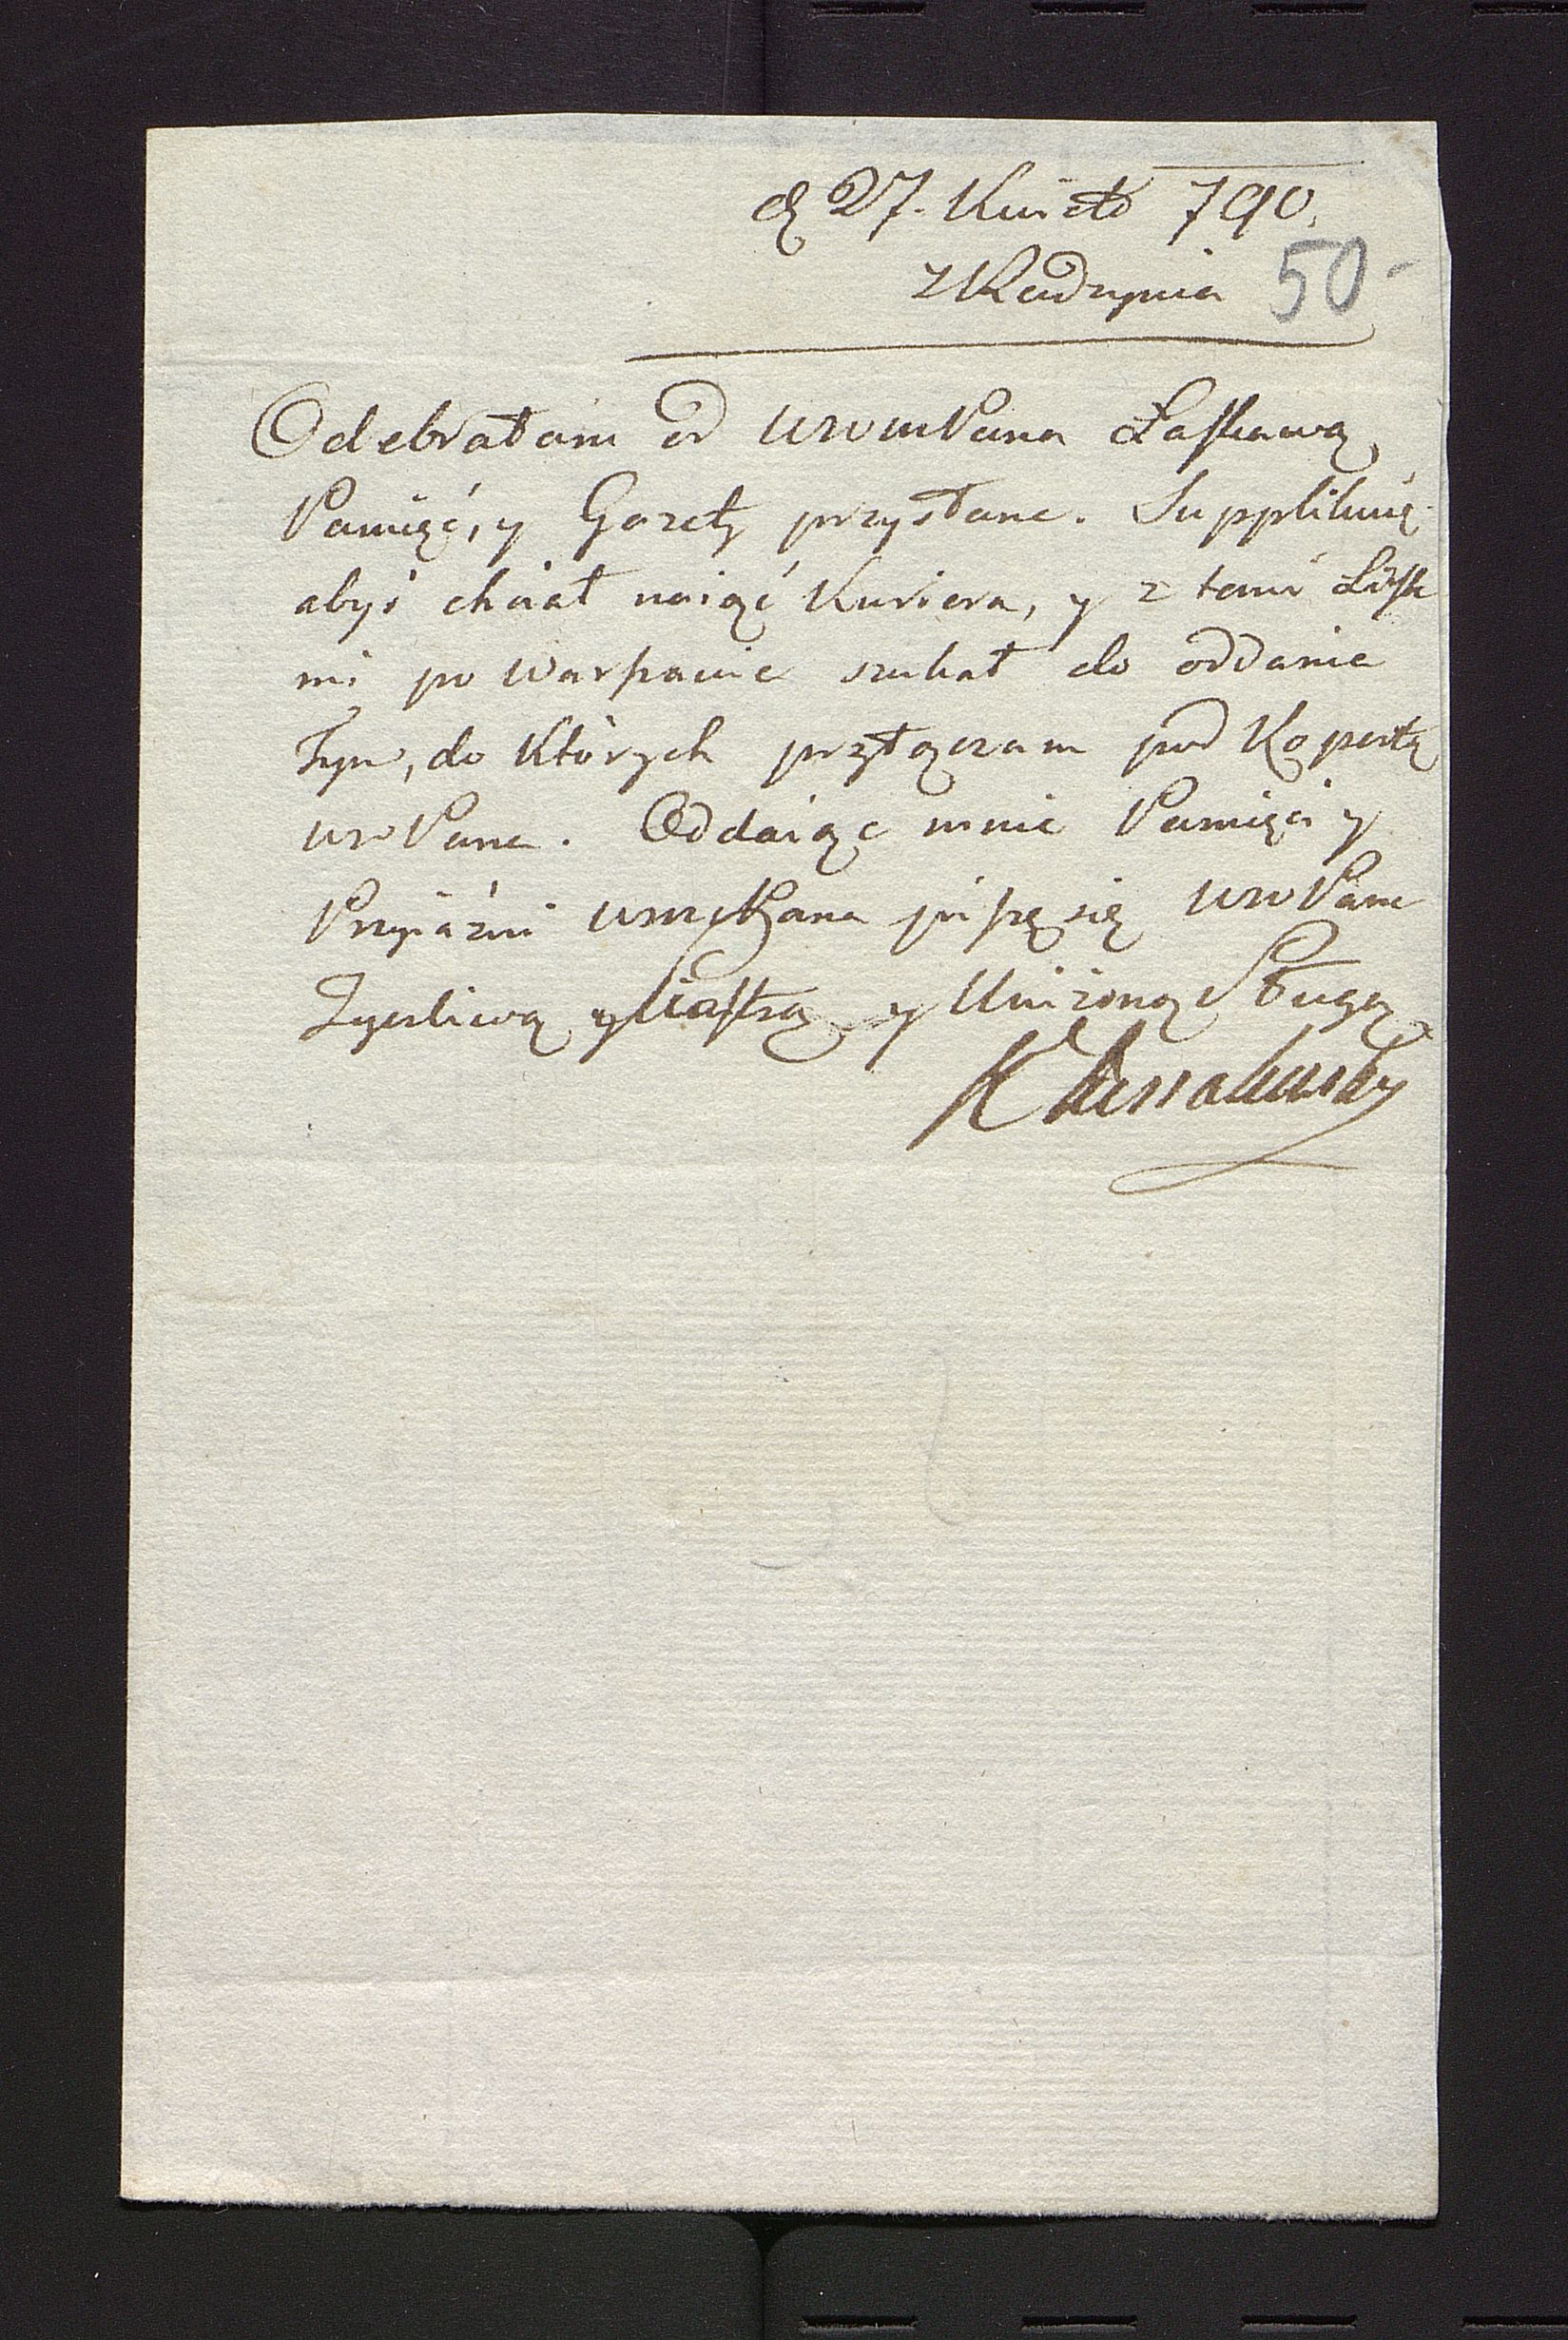 d 27. Kwiet 790.
z Radzynia 50
Odebrałam od WWmPana Łaskawą
Pamięć, y Gazety przysłane. Supplikuię
abyś chciał naiąć Kuriera, y z temi Lista
mi po Warszawie szukał do oddania
Tym, do których przyłączam pod Kopertą
WWPana. Oddaiąc mnie Pamięci y
Przyiaźni WWPana piszę się WWPana
Zyczliwą y Ciotką y Uniżoną Sługą
K